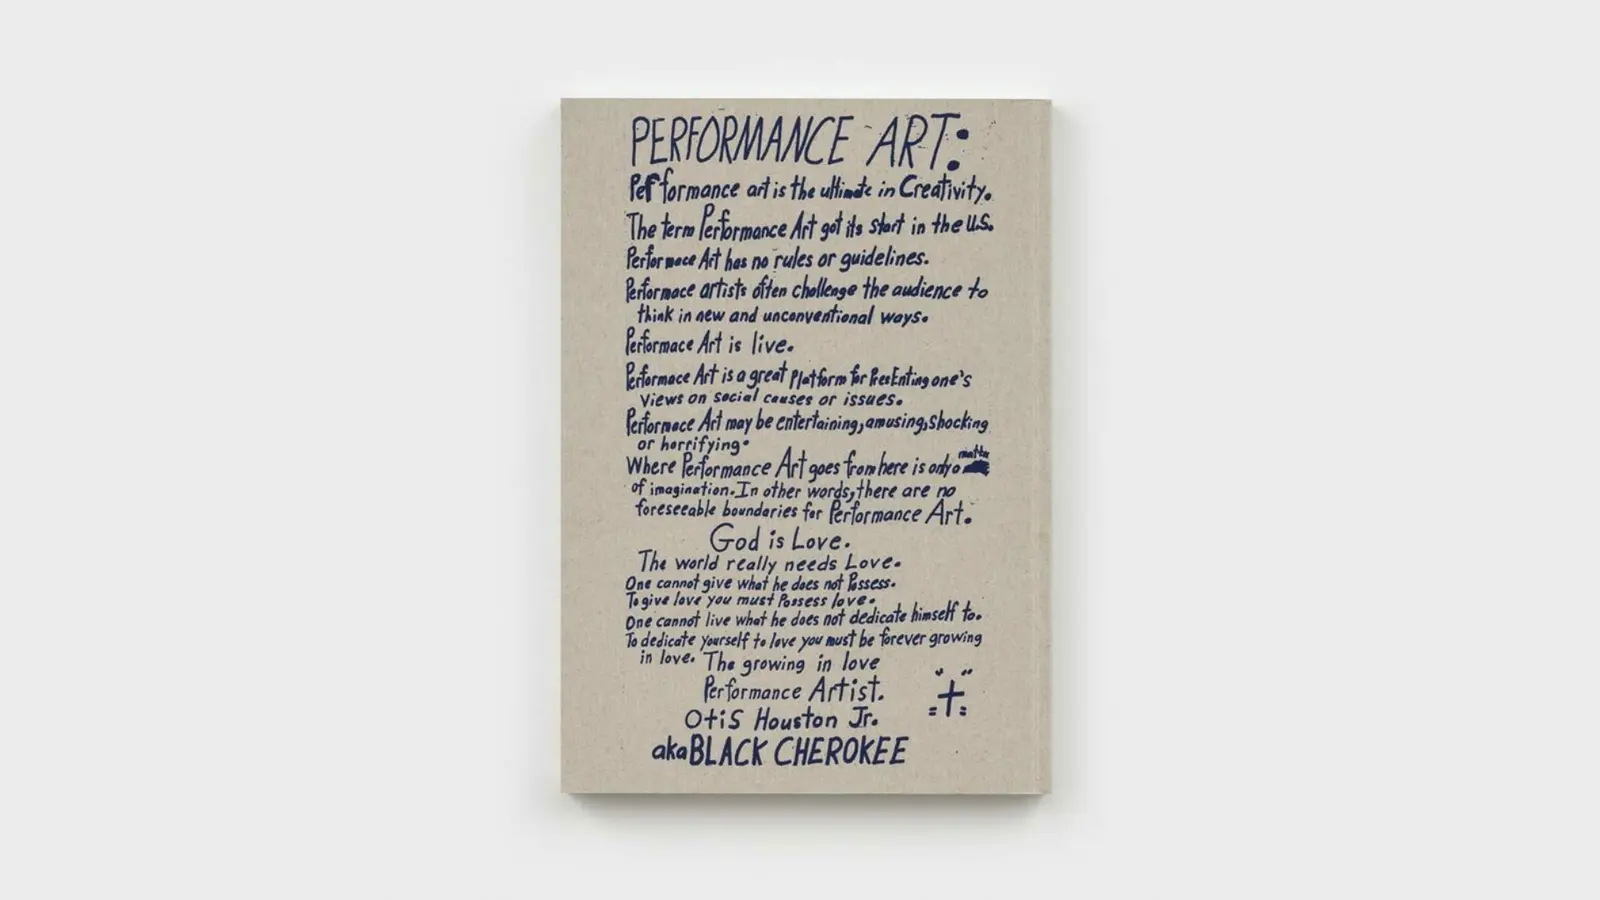 PERFORMANCE ART:
Performance art is the ultimate in Creativity.
The term Performance Art got its start in the U.S.
Performace Art has no rules or guidelines.
Performace artists often challenge the audience to
think in new and unconventional ways.
Performace Art is live.
Performace Art is a great Platform for PresEnting one's
views on social causes or issues.
Performace Art may be entertaining, amusing, shocking
or horrifying.
Where Performance Art goes from here is only a
of imagination. In other words, there are no
foreseeable boundaries for Performance Art.
God is Love.
The world really needs Love.
One cannot give what he does not Possess.
To give love you must Possess love.
One cannot live what he does not dedicate himself to.
To dedicate yourself to love you must be forever growing
in love. The growing in love
Performance Artist.
Otis Houston Jr.
aka BLACK CHEROKEE